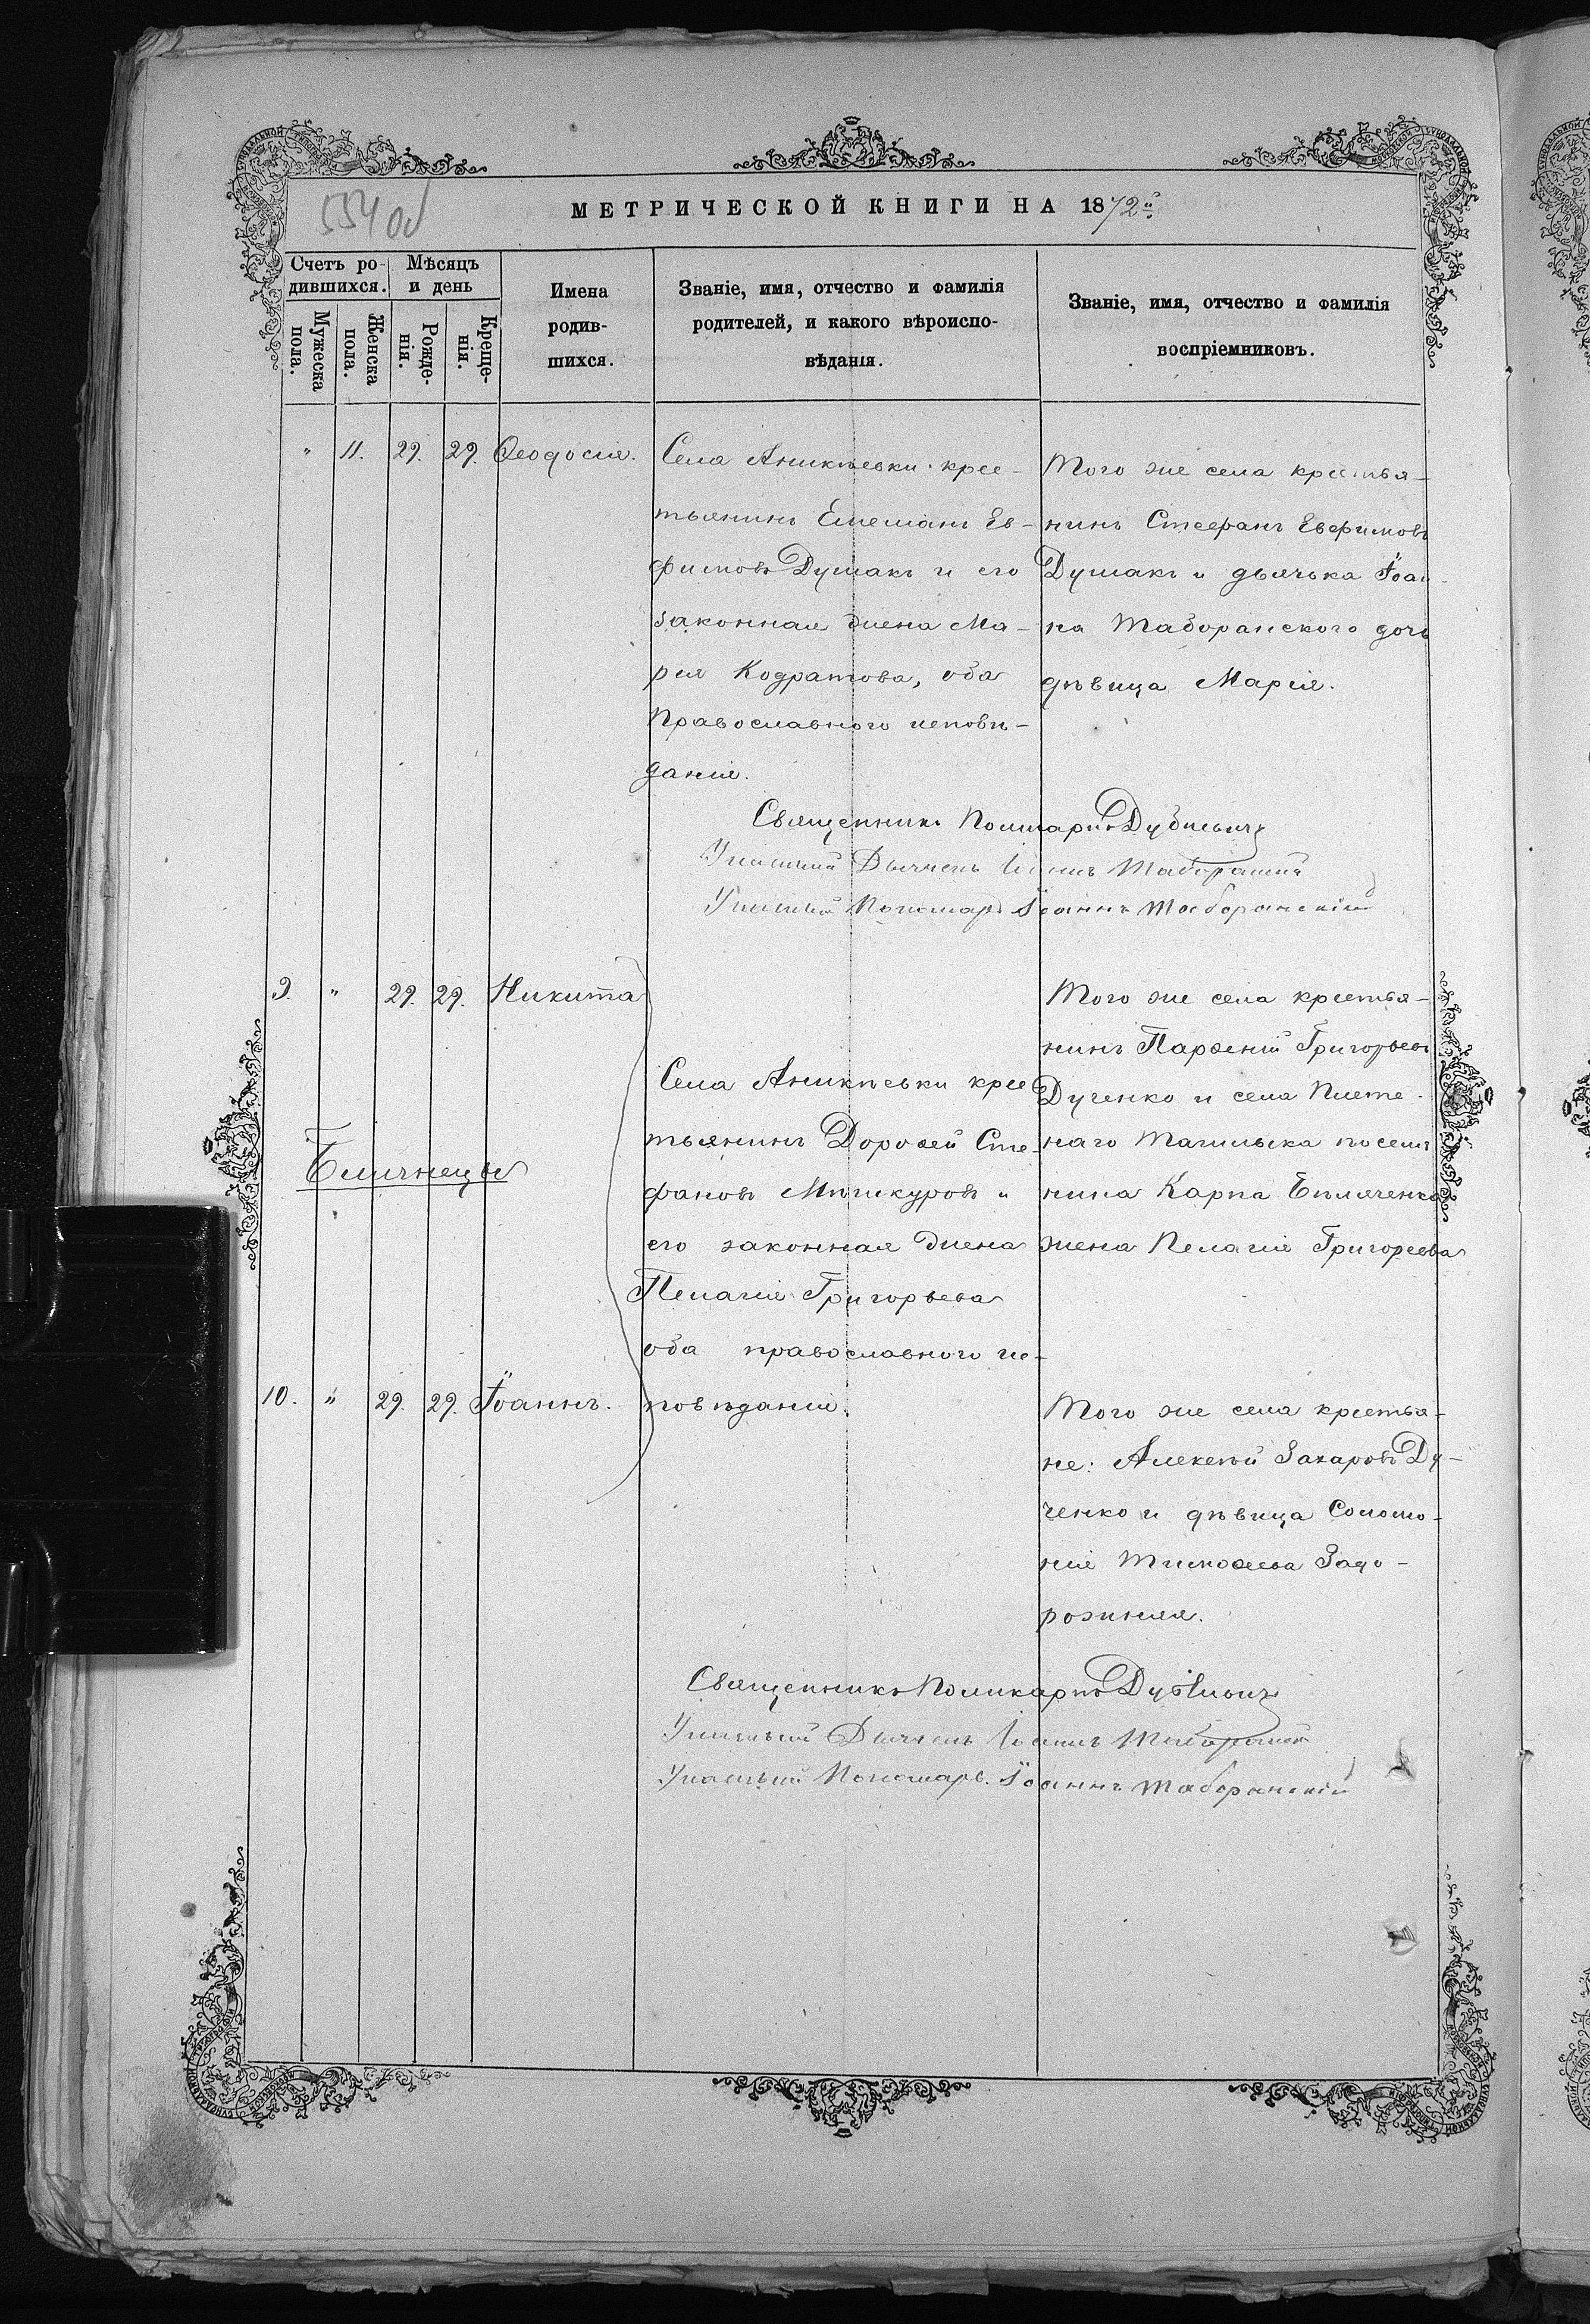 554 об
МЕТРИЧЕСКОЙ КНИГИ НА 1872й
Счетъ ро-
дившихся.
Мѣсяцъ
и день
Мужеска
пола.
Женска
пола.
Рожде-
нія.
Креще-
нія.
Имена
родив-
шихся.
Званіе, имя, отчество и фамилія
родителей, и какого вѣроиспо-
вѣданія.
Званіе, имя, отчество и фамилія
воспріемниковъ.
" 11. 29. 29. Ѳеодосія.
Села Аникѣевки крес-
тьянинъ Емеліанъ Ев-
фимовъ Думакъ и его
законная жена Ма-
рія Кодратова, оба
Православного исповѣ-
данія.
Того же села крестья-
нинъ Стефанъ Евфимовъ
Думакъ и дьячька Іоан-
на Таборанского дочь
дѣвица Марія.
Священникъ Поликарпъ Дубневичъ
Дьячекъ Іоаннъ Таборанскій
Пономарь Іоаннъ Таборанскій
9. " 29. 29. Никита
Близнецы
Села Аникѣевки крес
тьянинъ Дороѳей Сте-
фановъ Мѣшкуровъ и
его законная жена
Пелагія Григорьева
оба православного ис-
повѣданія.
Того же села крестья-
нинъ Парѳеній Григорьевъ
Дученко и села Плете-
наго Ташлыка поселя
нина Карпа Бѣляченка
жена Пелагія Григореева
10. " 29. 29. Іоаннъ.
Того же села крестья-
не: Алексѣй Захаровъ Ду-
ченко и дѣвица Соломо-
нія Тимоѳеева Задо-
рожняя.
Священникъ Поликарпъ Дубневичъ
Дьячекъ Іоаннъ Таборанскій
Пономарь Іоаннъ Таборанскій